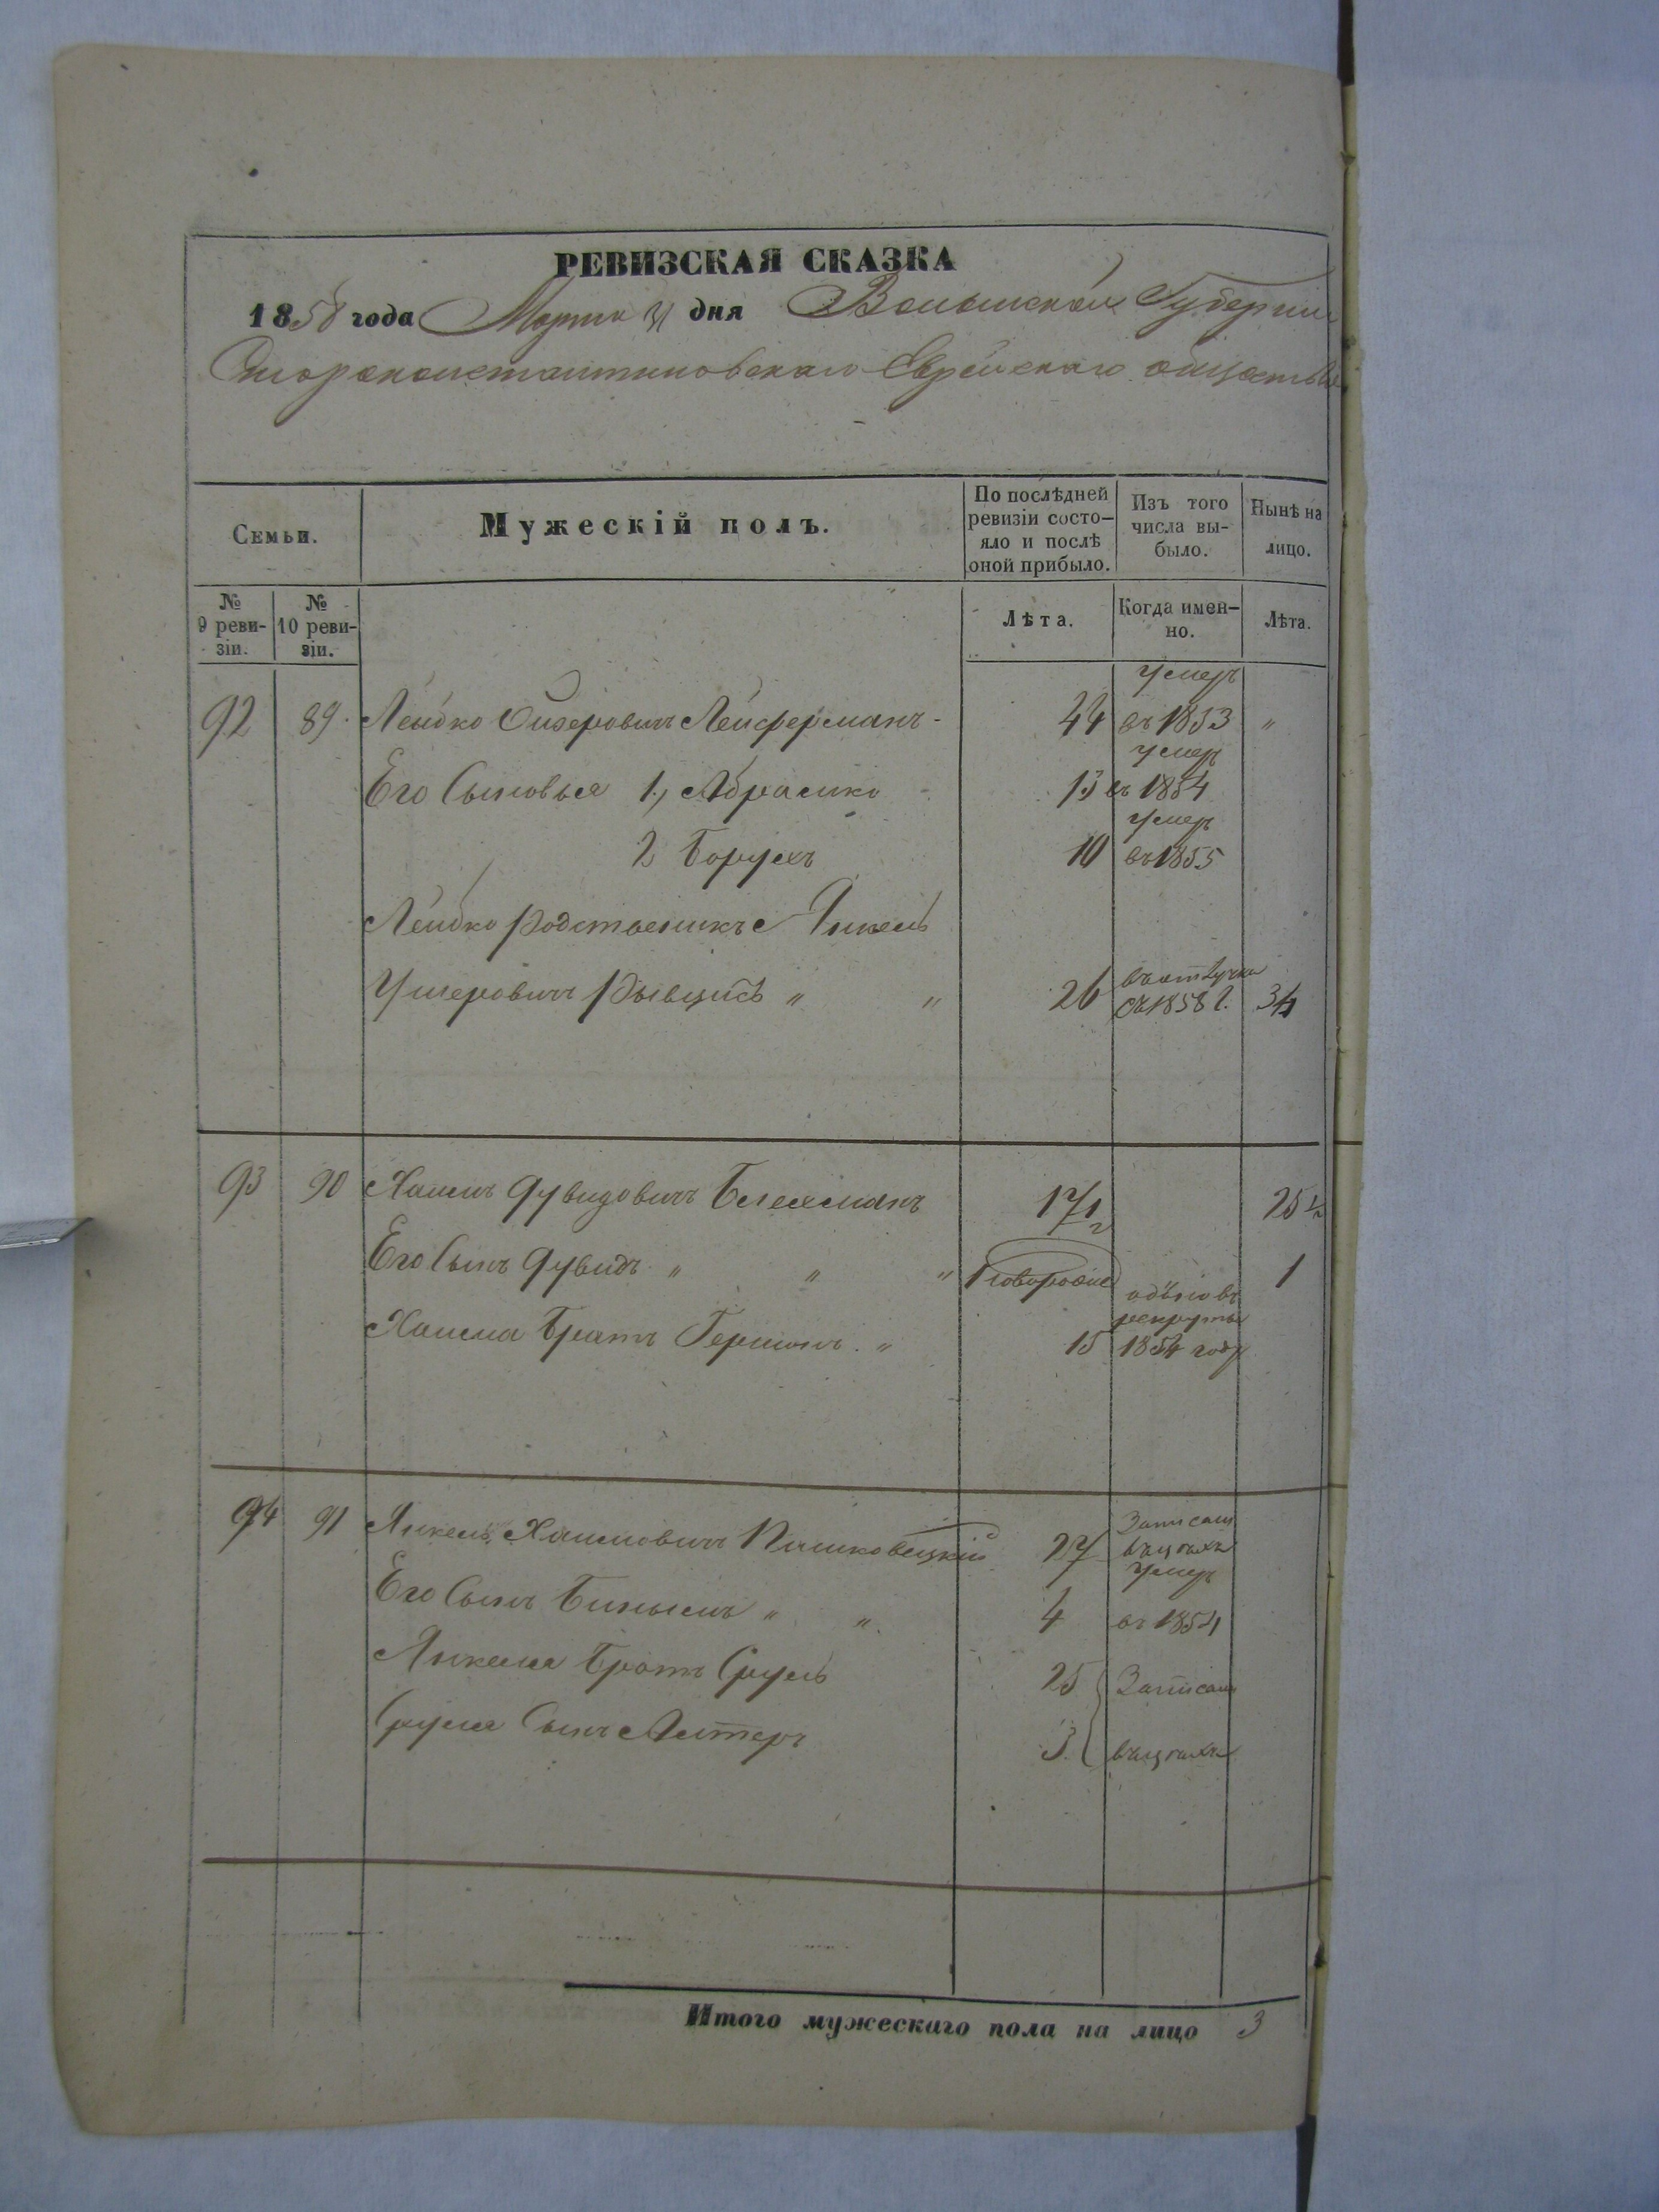 РЕВИЗСКАЯ СКАЗКА
1858 года Марта 31 дня Волынской Губернии
Староконстантиновскаго Еврейскаго общества
Семьи.
Мужескій полъ.
По послѣдней ревизіи состо-
яло и послѣ
оной прибыло.
Изъ того
числа вы-
было.
Нынѣ на
лицо.
№
9 реви-
зіи.
№
10 реви-
зіи.
Лѣта.
Когда имен-
но.
Лѣта.
умеръ
92 89. Лейбко Ойзеровичъ Лейферманъ - 44 въ 1853 "
умеръ
Его Сыновья 1, Абрамко 13 въ 1854
умеръ
2 Борухъ 10 въ 1855
Лейбко родственикъ Янкель
Ушеровичъ " " 26 въ отлучки съ 1858 г. 34
93 90 Хаимъ Дувидовичъ Блехманъ 17 1/2 25 1/2
Его Сынъ Дувидъ " " " новорожде 1
рекруты
Хаима Братъ Гершонъ. " 15 1854 году
94 91 Янкель Хаимовичъ Пашковецкій 27 Записанъ въ цехъ
умеръ
Его Сынъ Биньемъ " " 4 въ 1854
Янкеля Братъ Сруль 25 Записаны
Сруля Сынъ Алтеръ 3. въ цехъ
Итого мужескаго пола на лицо 3